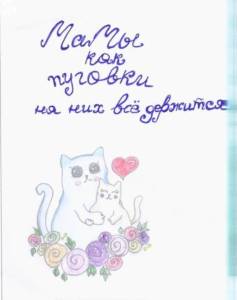 Мамы
как
пуговки
на них всё держится